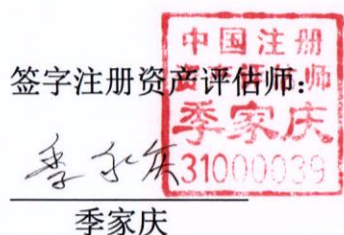 签字注册资产评估师：
中国注册
资产评估师
季家庆
31000039
季家庆
季家庆